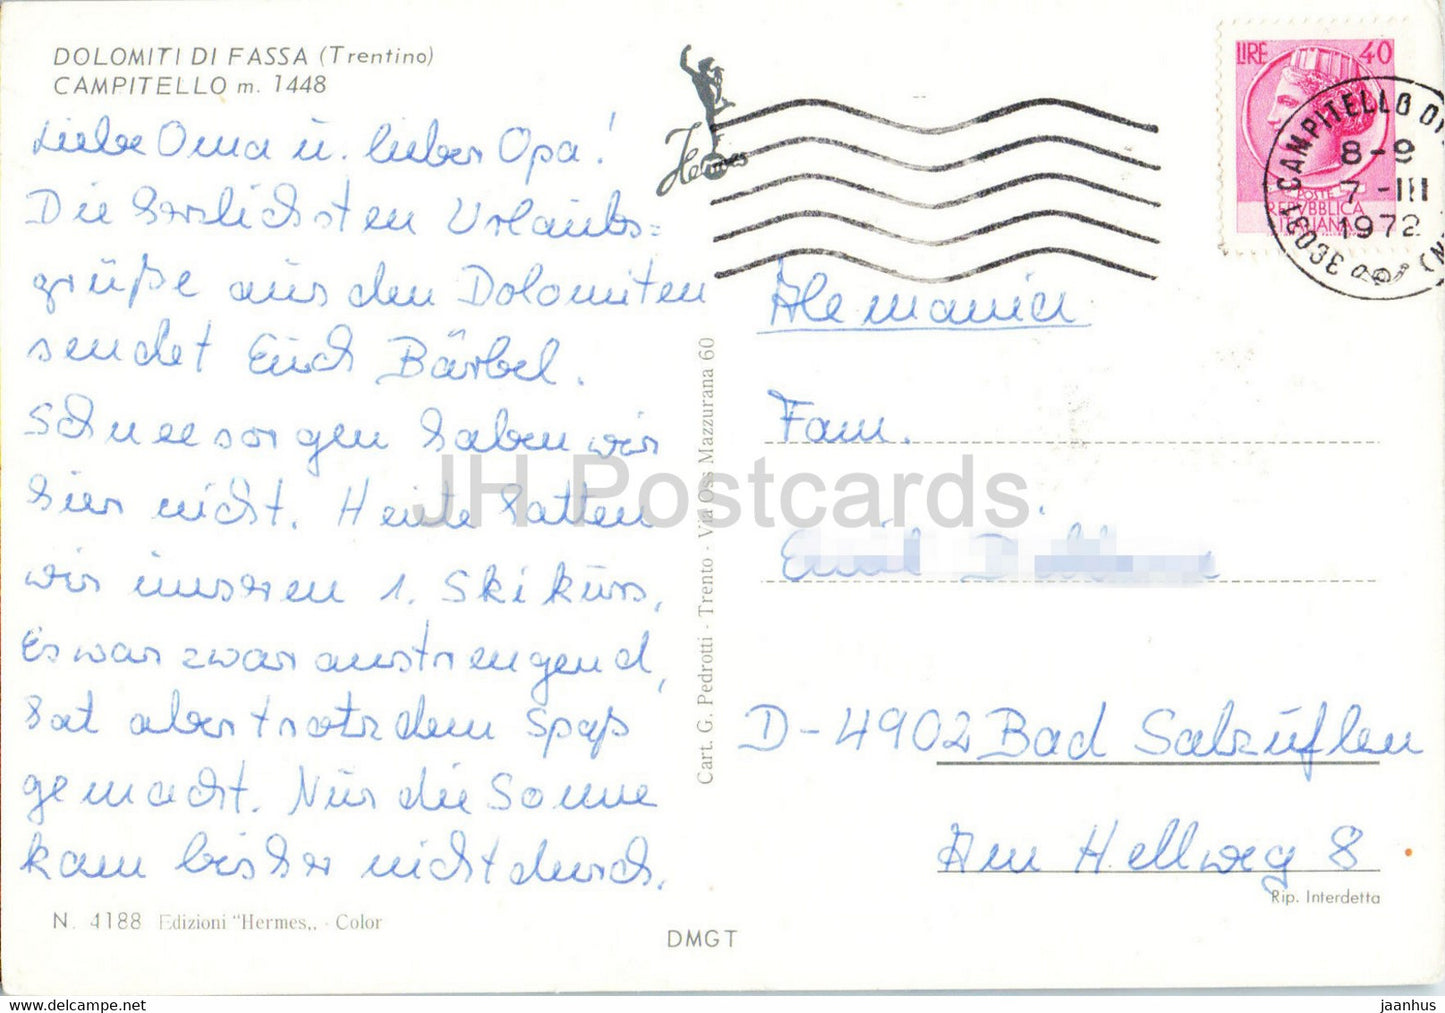 DOLOMITI DI FASSA (Trentino)
CAMPITELLO m. 1448
Liebe Oma u. lieber Opa!
Die herzlichsten Urlaubs=
grüße aus den Dolomiten
sendet Euch Bärbel.
Schneesorgen haben wir
hier nicht. Heute hatten
wir unseren 1. Skikurs.
Es war zwar anstrengend,
hat aber trotzdem Spaß
gemacht. Nur die Sonne
kam bisher nicht durch.
N. 4188 Edizioni "Hermes„ - Color
DMGT
Cart. G. Pedrotti - Trento - Via Oss Mazzurana 60
Hermes
LIRE 40
POSTE
REPVBBLICA
ITALIANA
CAMPITELLO DI
8-9
7-III
1972
Alemania
Fam.
Emil
D-4902 Bad Salzuflen
Am Hellweg 8
Rip. Interdetta
JH Postcards
https://www.ansichtskartenversand.com/ak
jaanhus